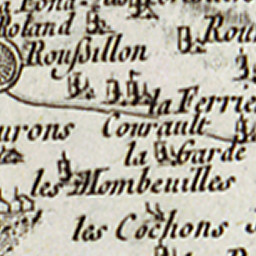 Roland
Roussillon
la Ferrie
urons Courault
la Garde
les Mombeuilles
les Cochons